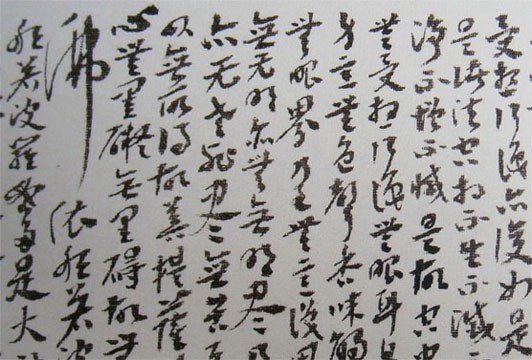 受想行識亦復如是
是諸法空相不生不滅
淨不增不減是故空中
無受想行識無眼耳
身意無色聲香味觸
無眼界乃至無意識界
無无明亦無無明盡乃
亦无老死盡無苦
以無所得故菩提薩
心無罣礙無罣礙故無
佛 依般若波
般若波羅蜜多是大